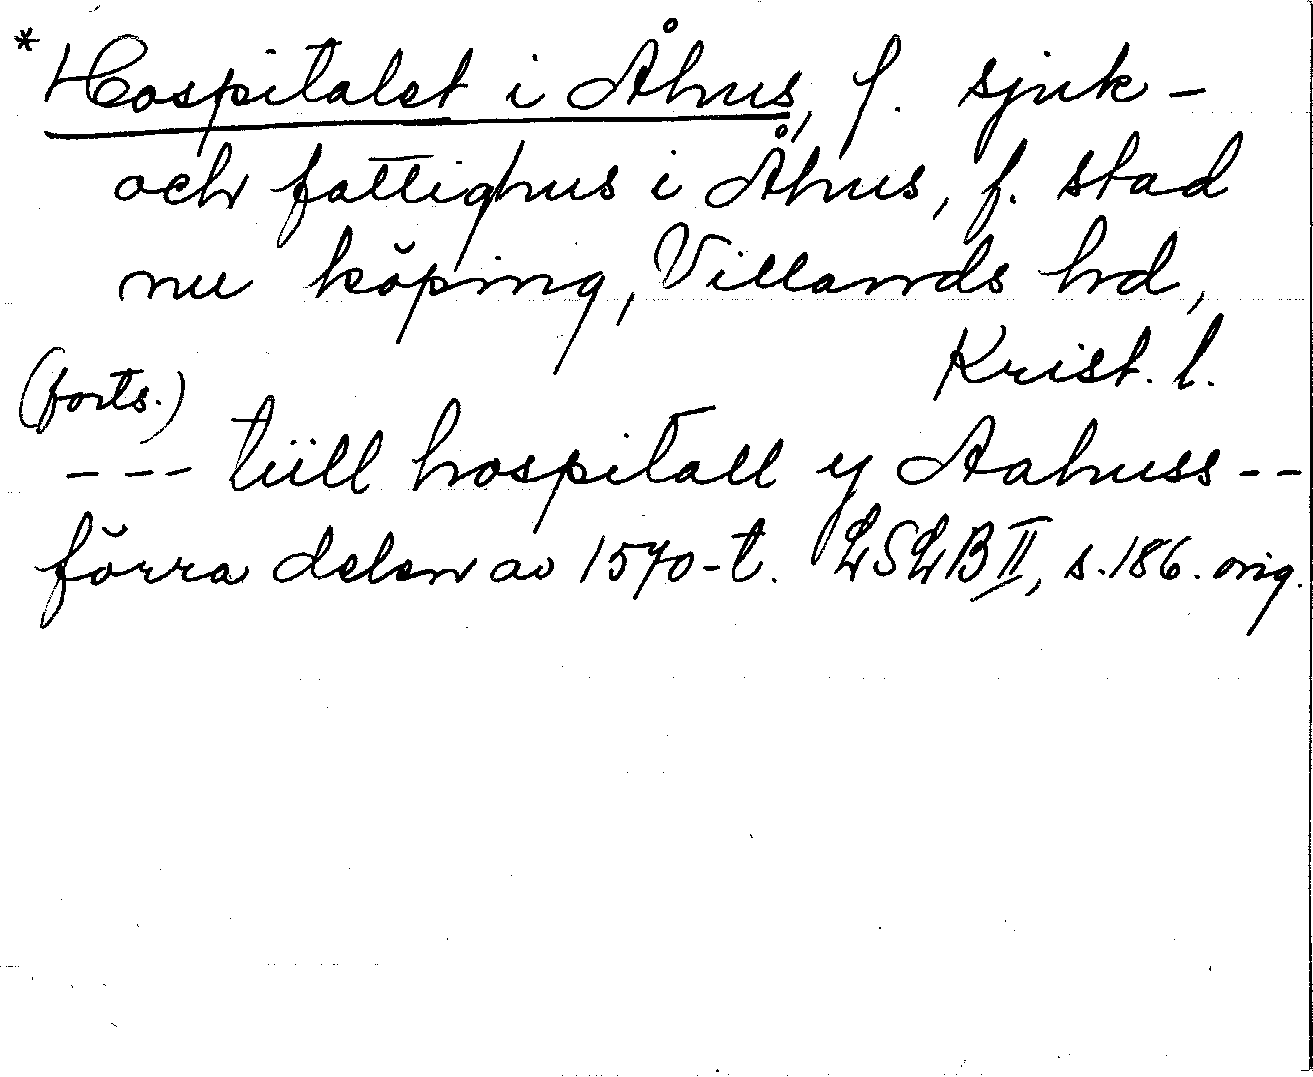 * Hospitalet i Åhus, f. sjuk-
och fattighus i Åhus, f. stad
nu köping, Villands hd,
Krist. l.
(forts.)
--- tiill hospitall y Aahuss --
förra delen av 1570-t. LSLB II, s. 186. orig.